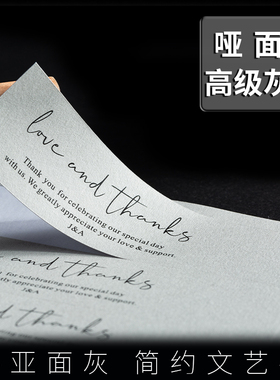 哑面
高级灰
love and thanks
Thank you for celebrating our special day
with us. We greatly appreciate your love & support.
J&A
love and thanks
Thank you for celebrating our special day
with us. We greatly appreciate your love & support.
J&A
thanks
亚面灰 简约文艺